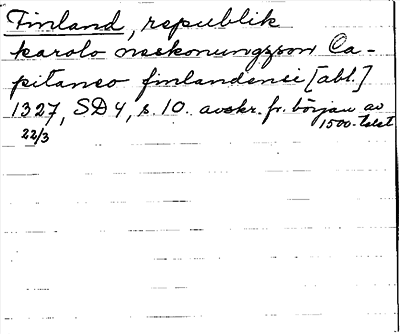 Finland, republik
karolo neskonungzson Ca-
pitaneo finlandensi [abl.]
1327, SD 4, s. 10. avskr. fr. början av
22/3 1500-talet